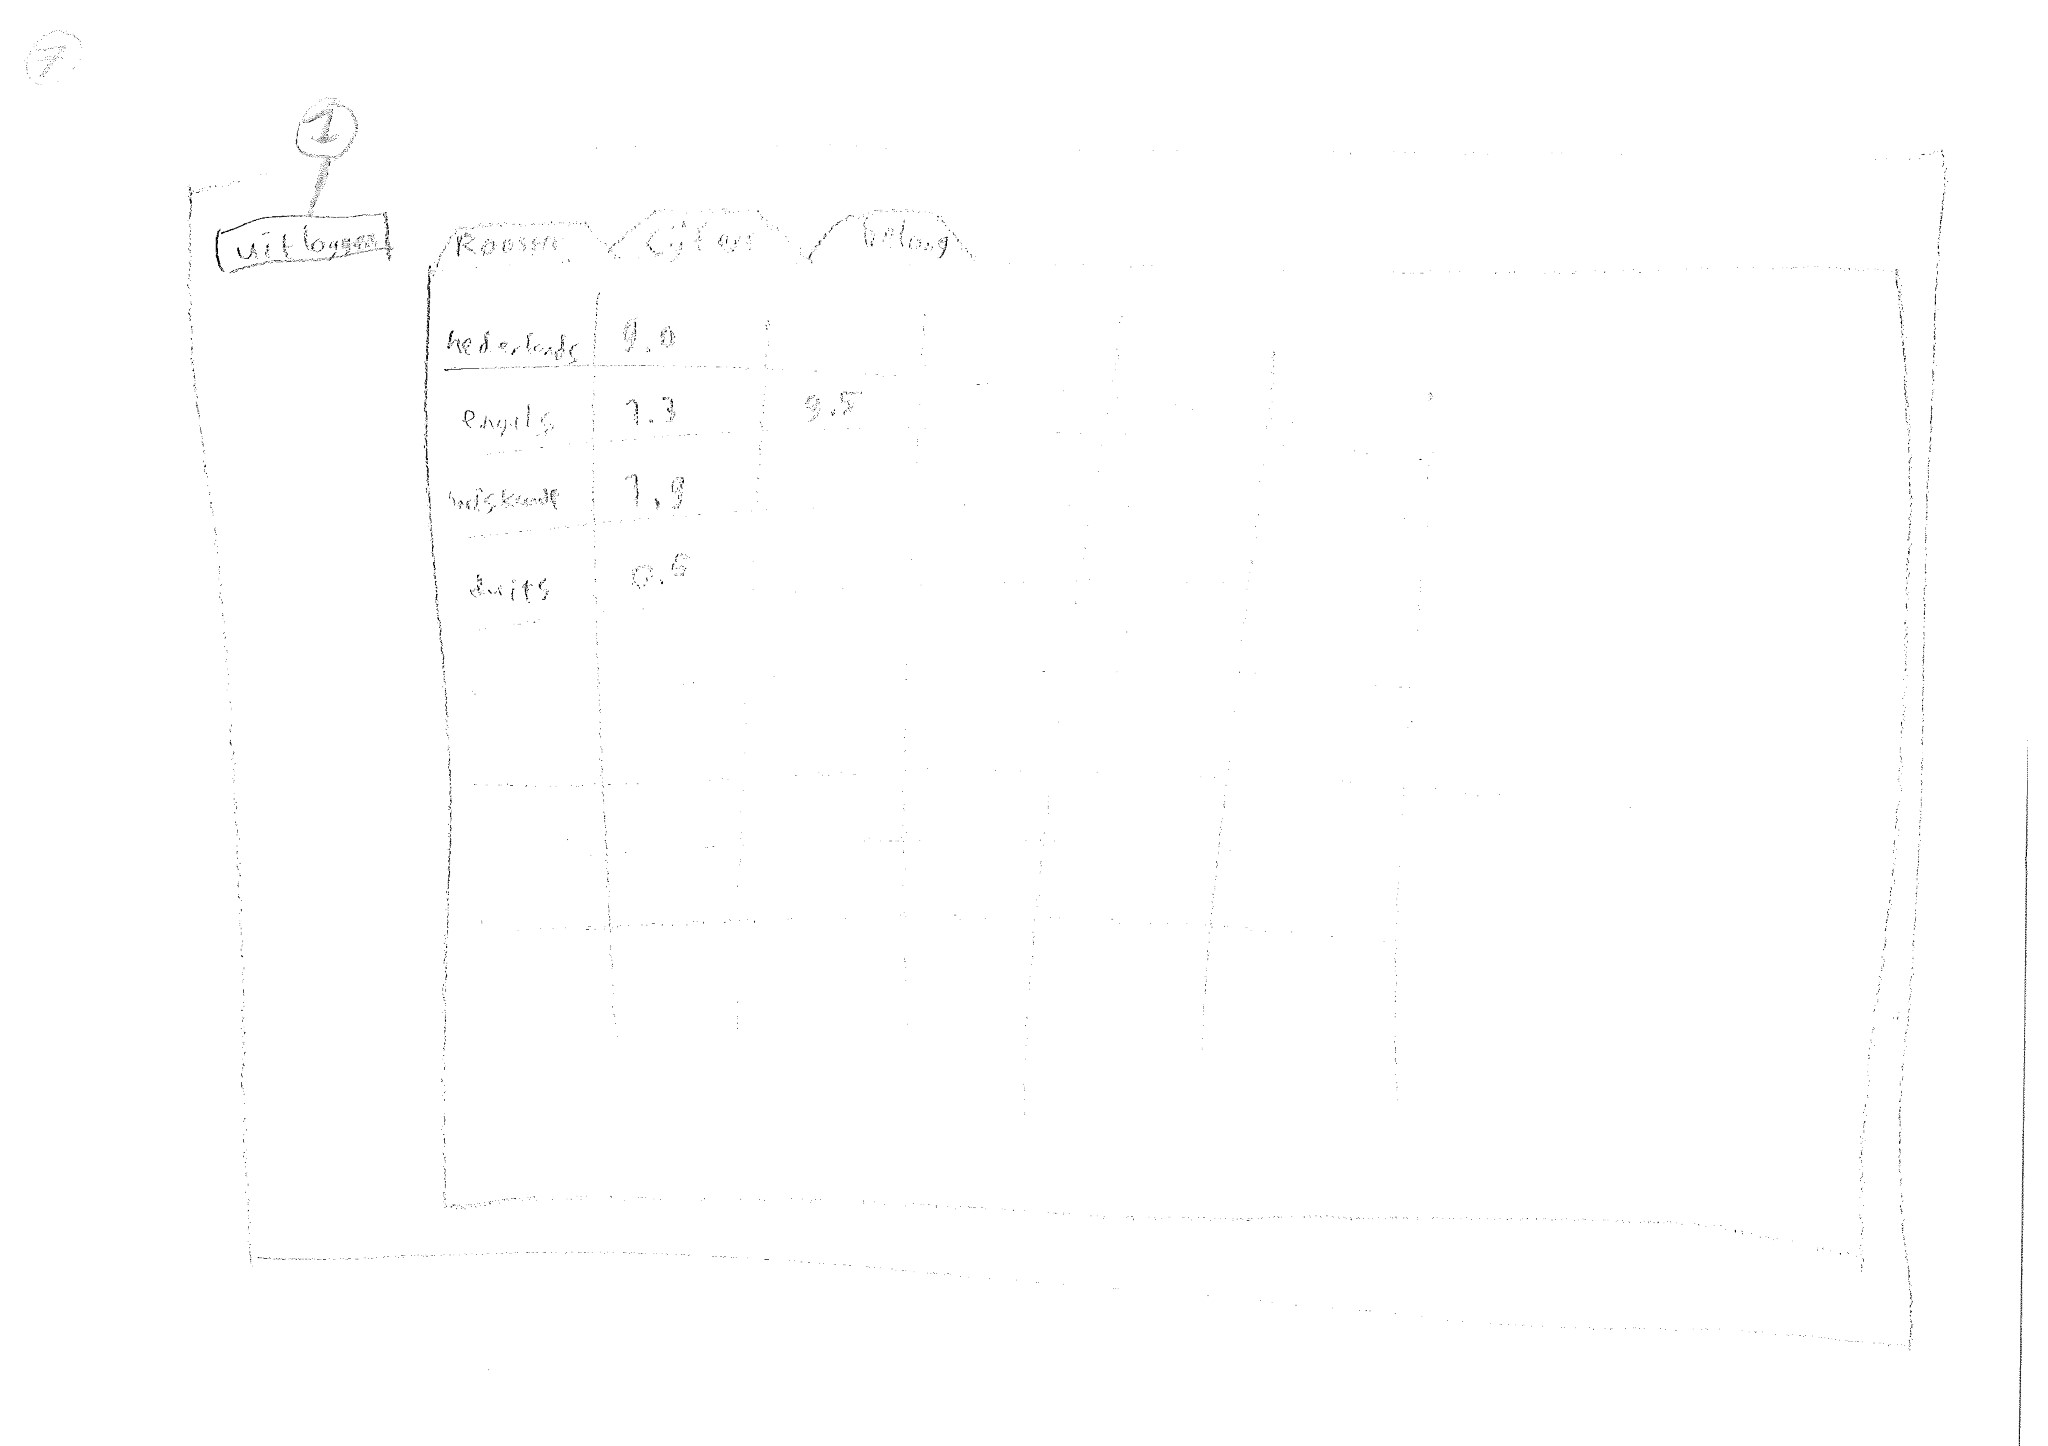 7
1
uitloggen
Rooster Cijfers
nederlands 9.0
engels 1.3 9.5
wiskunde 1,9
duits 0.5